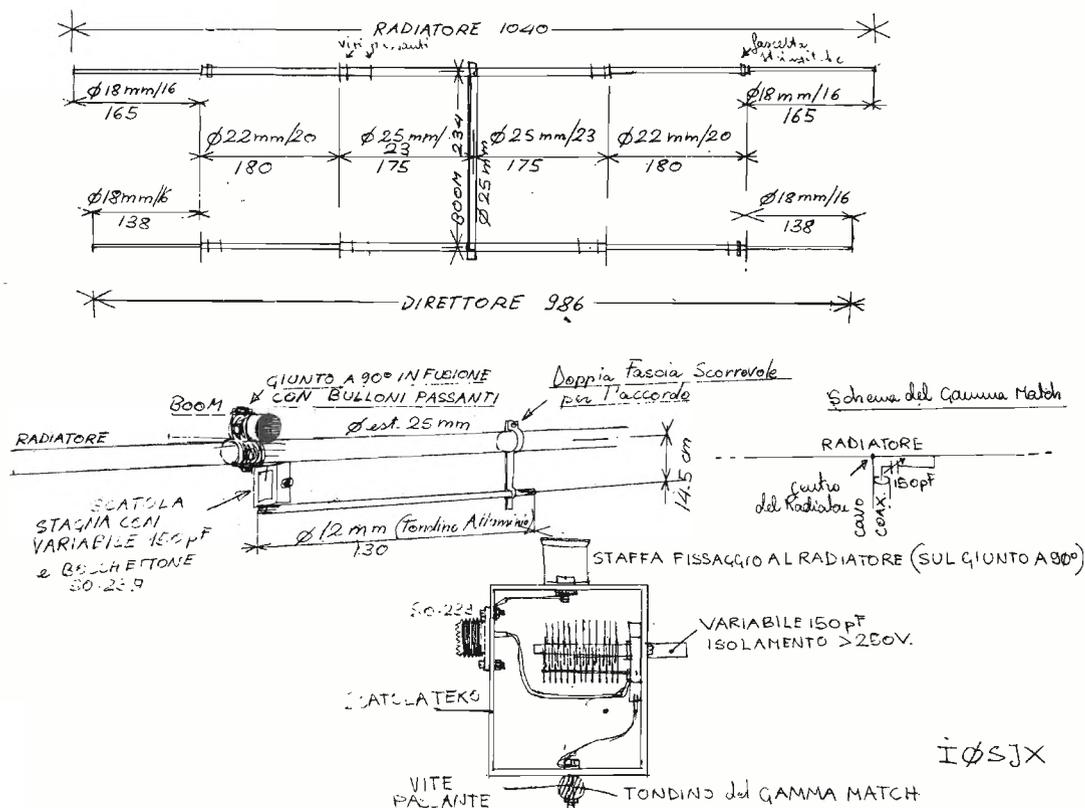 RADIATORE 1040
viti passanti
fascetta
Ø18mm/16
165
Ø22mm/20
180
Ø25mm/
23
175
BOOM 234
Ø25mm
Ø25mm/23
175
Ø22mm/20
180
Ø18mm/16
165
Ø18mm/16
138
Ø18mm/16
138
DIRETTORE 986
GIUNTO A 90° IN FUSIONE
CON BULLONI PASSANTI
BOOM
RADIATORE
Øest. 25 mm
Doppia Fascia Scorrevole
per l'accordo
14.5 cm
SCATOLA
STAGNA CON
VARIABILE 150pF
e BOCCHETTONE
SO-239
Ø12mm (Tondino Alluminio)
130
Schema del Gamma Match
RADIATORE
Centro
del Radiatore
CAVO
COAX.
150pF
STAFFA FISSAGGIO AL RADIATORE (SUL GIUNTO A 90°)
SO-239
VARIABILE 150pF
ISOLAMENTO >250V.
SCATOLA TEKO
VITE
PASSANTE
TONDINO del GAMMA MATCH
IØSJX